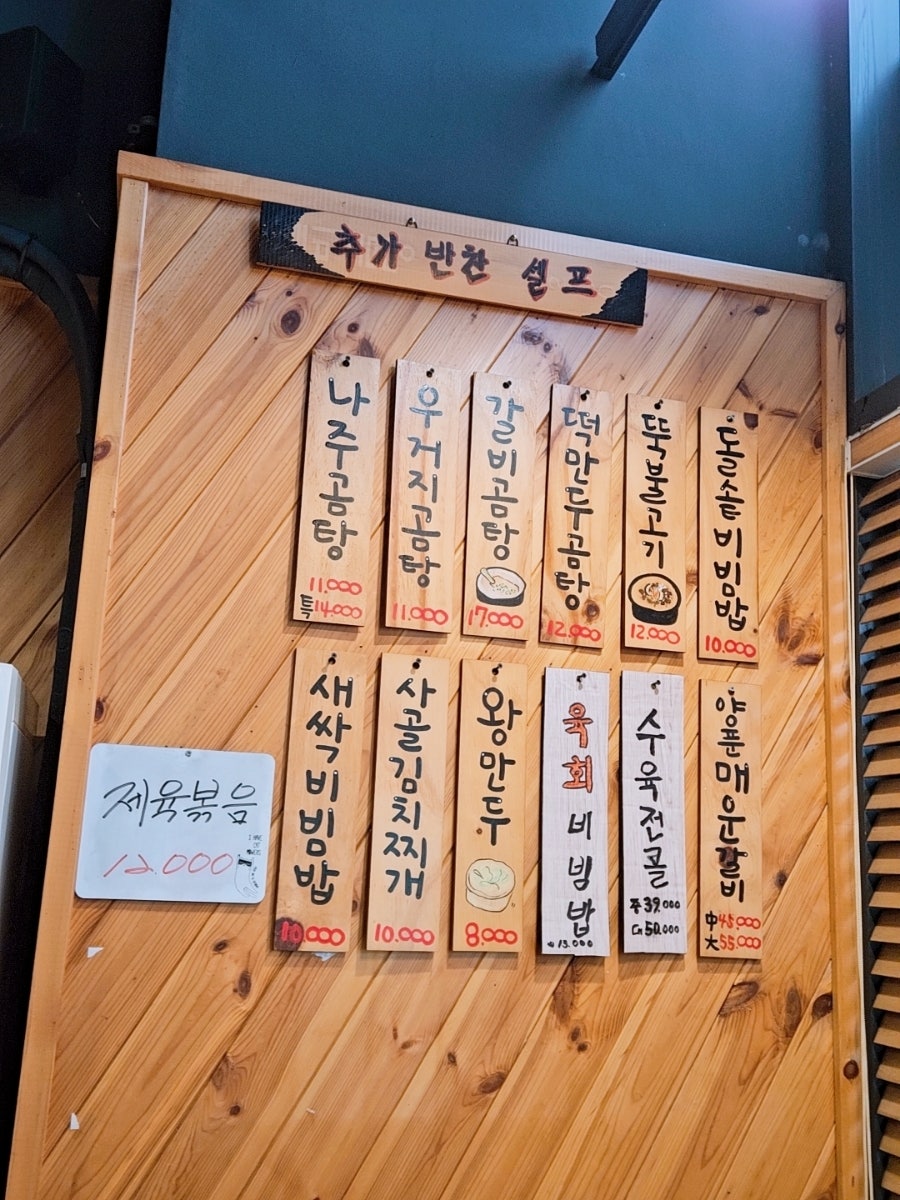 추가 반찬 셀프
나주곰탕
11,000
특14,000
우거지곰탕
11,000
갈비곰탕
17,000
떡만두곰탕
12,000
뚝불고기
12,000
돌솥비빔밥
10,000
새싹비빔밥
10,000
사골김치찌개
10,000
왕만두
8,000
육회비빔밥
13,000
수육전골
中39,000
대50,000
양푼매운갈비
中45,000
大55,000
제육볶음
12,000